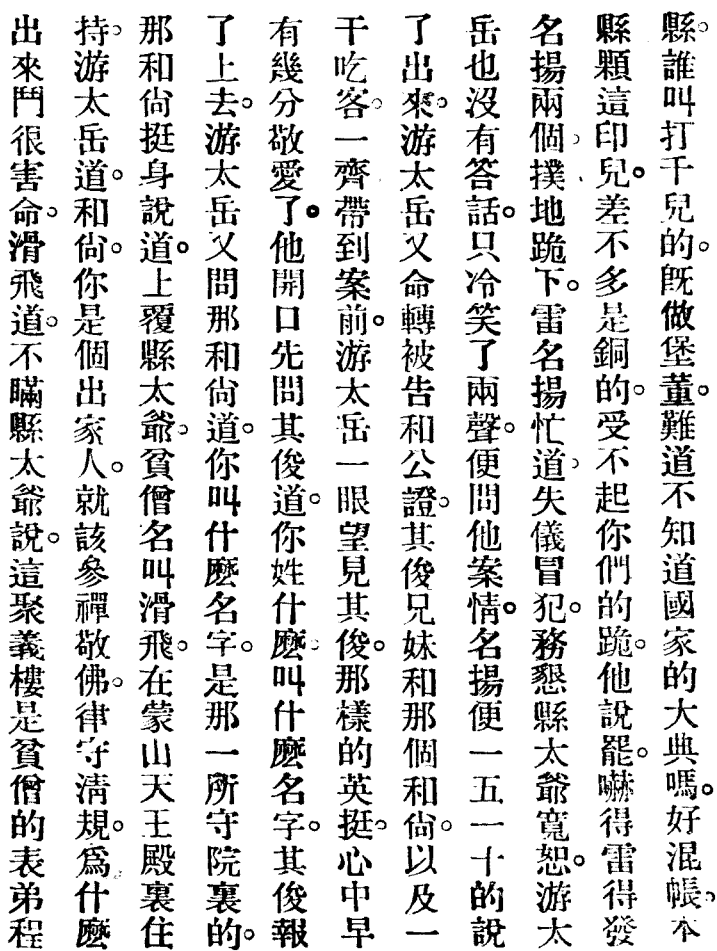 縣。誰叫打千兒的。既做堡董。難道不知道國家的大典嗎。好混帳。本
縣顆這印兒。差不多是銅的。受不起你們的跪。他說罷。嚇得雷得發
名揚兩個、撲地跪下。雷名揚忙道、失儀冒犯。務懇縣太爺寬恕。游太
岳也沒有答話。只冷笑了兩聲。便問他案情。名揚便一五一十的說
了出來。游太岳又命轉被告和公證。其俊兄妹和那個和尙。以及一
干吃客。一齊帶到案前。游太岳一眼望見其俊。那樣的英挺。心中早
有幾分敬愛了。他開口先問其俊道。你姓什麼。叫什麼名字。其俊報
了上去。游太岳又問那和尙道。你叫什麼名字。是那一所守院裏的。
那和尙挺身說道。上覆縣太爺。貧僧名叫滑飛。在蒙山天王殿裏住
持。游太岳道。和尙。你是個出家人。就該參禪敬佛。律守淸規。爲什麼
出來鬥很害命。滑飛道。不瞞縣太爺說。這聚義樓是貧僧的表弟程